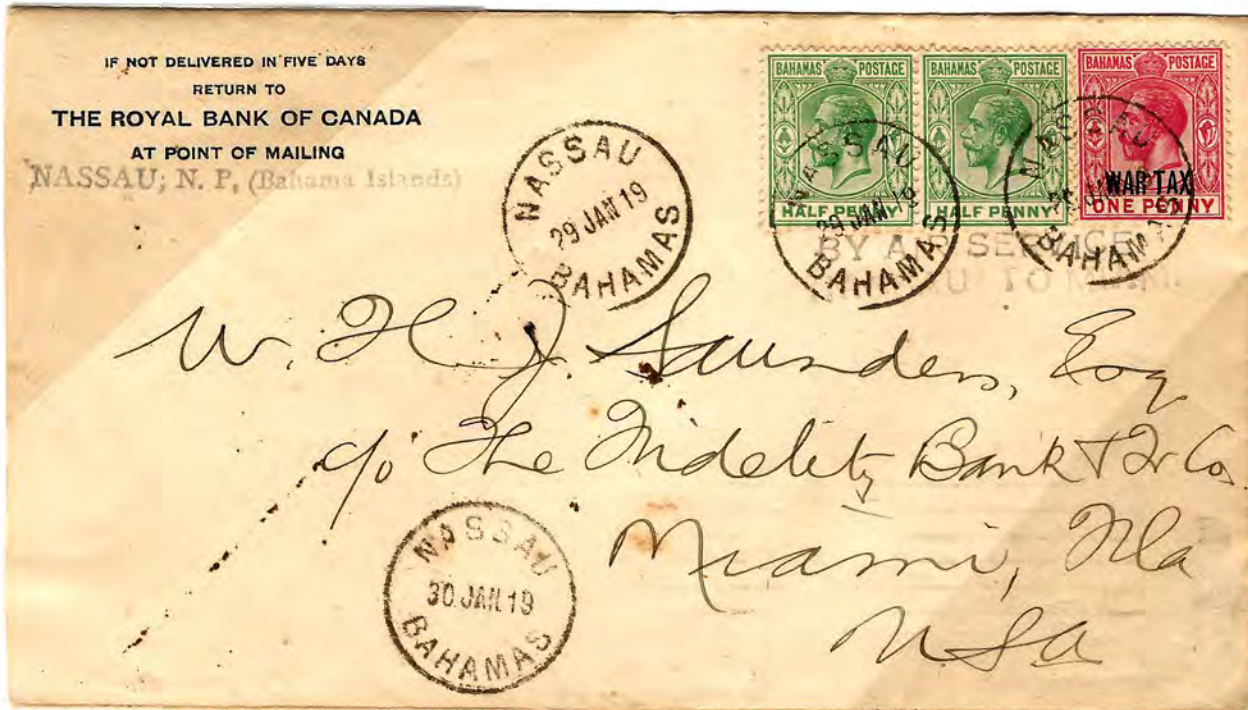 IF NOT DELIVERED IN FIVE DAYS
RETURN TO
THE ROYAL BANK OF CANADA
AT POINT OF MAILING
NASSAU, N. P, (Bahama Islands)
BAHAMAS POSTAGE
HALF PENNY
BAHAMAS POSTAGE
HALF PENNY
BAHAMAS POSTAGE
WAR TAX
ONE PENNY
NASSAU
29 JAN 19
BAHAMAS
NASSAU
29 JAN 19
BAHAMAS
NASSAU
BAHAMAS
BY AIR SERVICE
TO
W. H. J. Saunders, Esq
c/o The Fidelity Bank & Tr Co.
Miami, Fla
USA
NASSAU
30 JAN 19
BAHAMAS